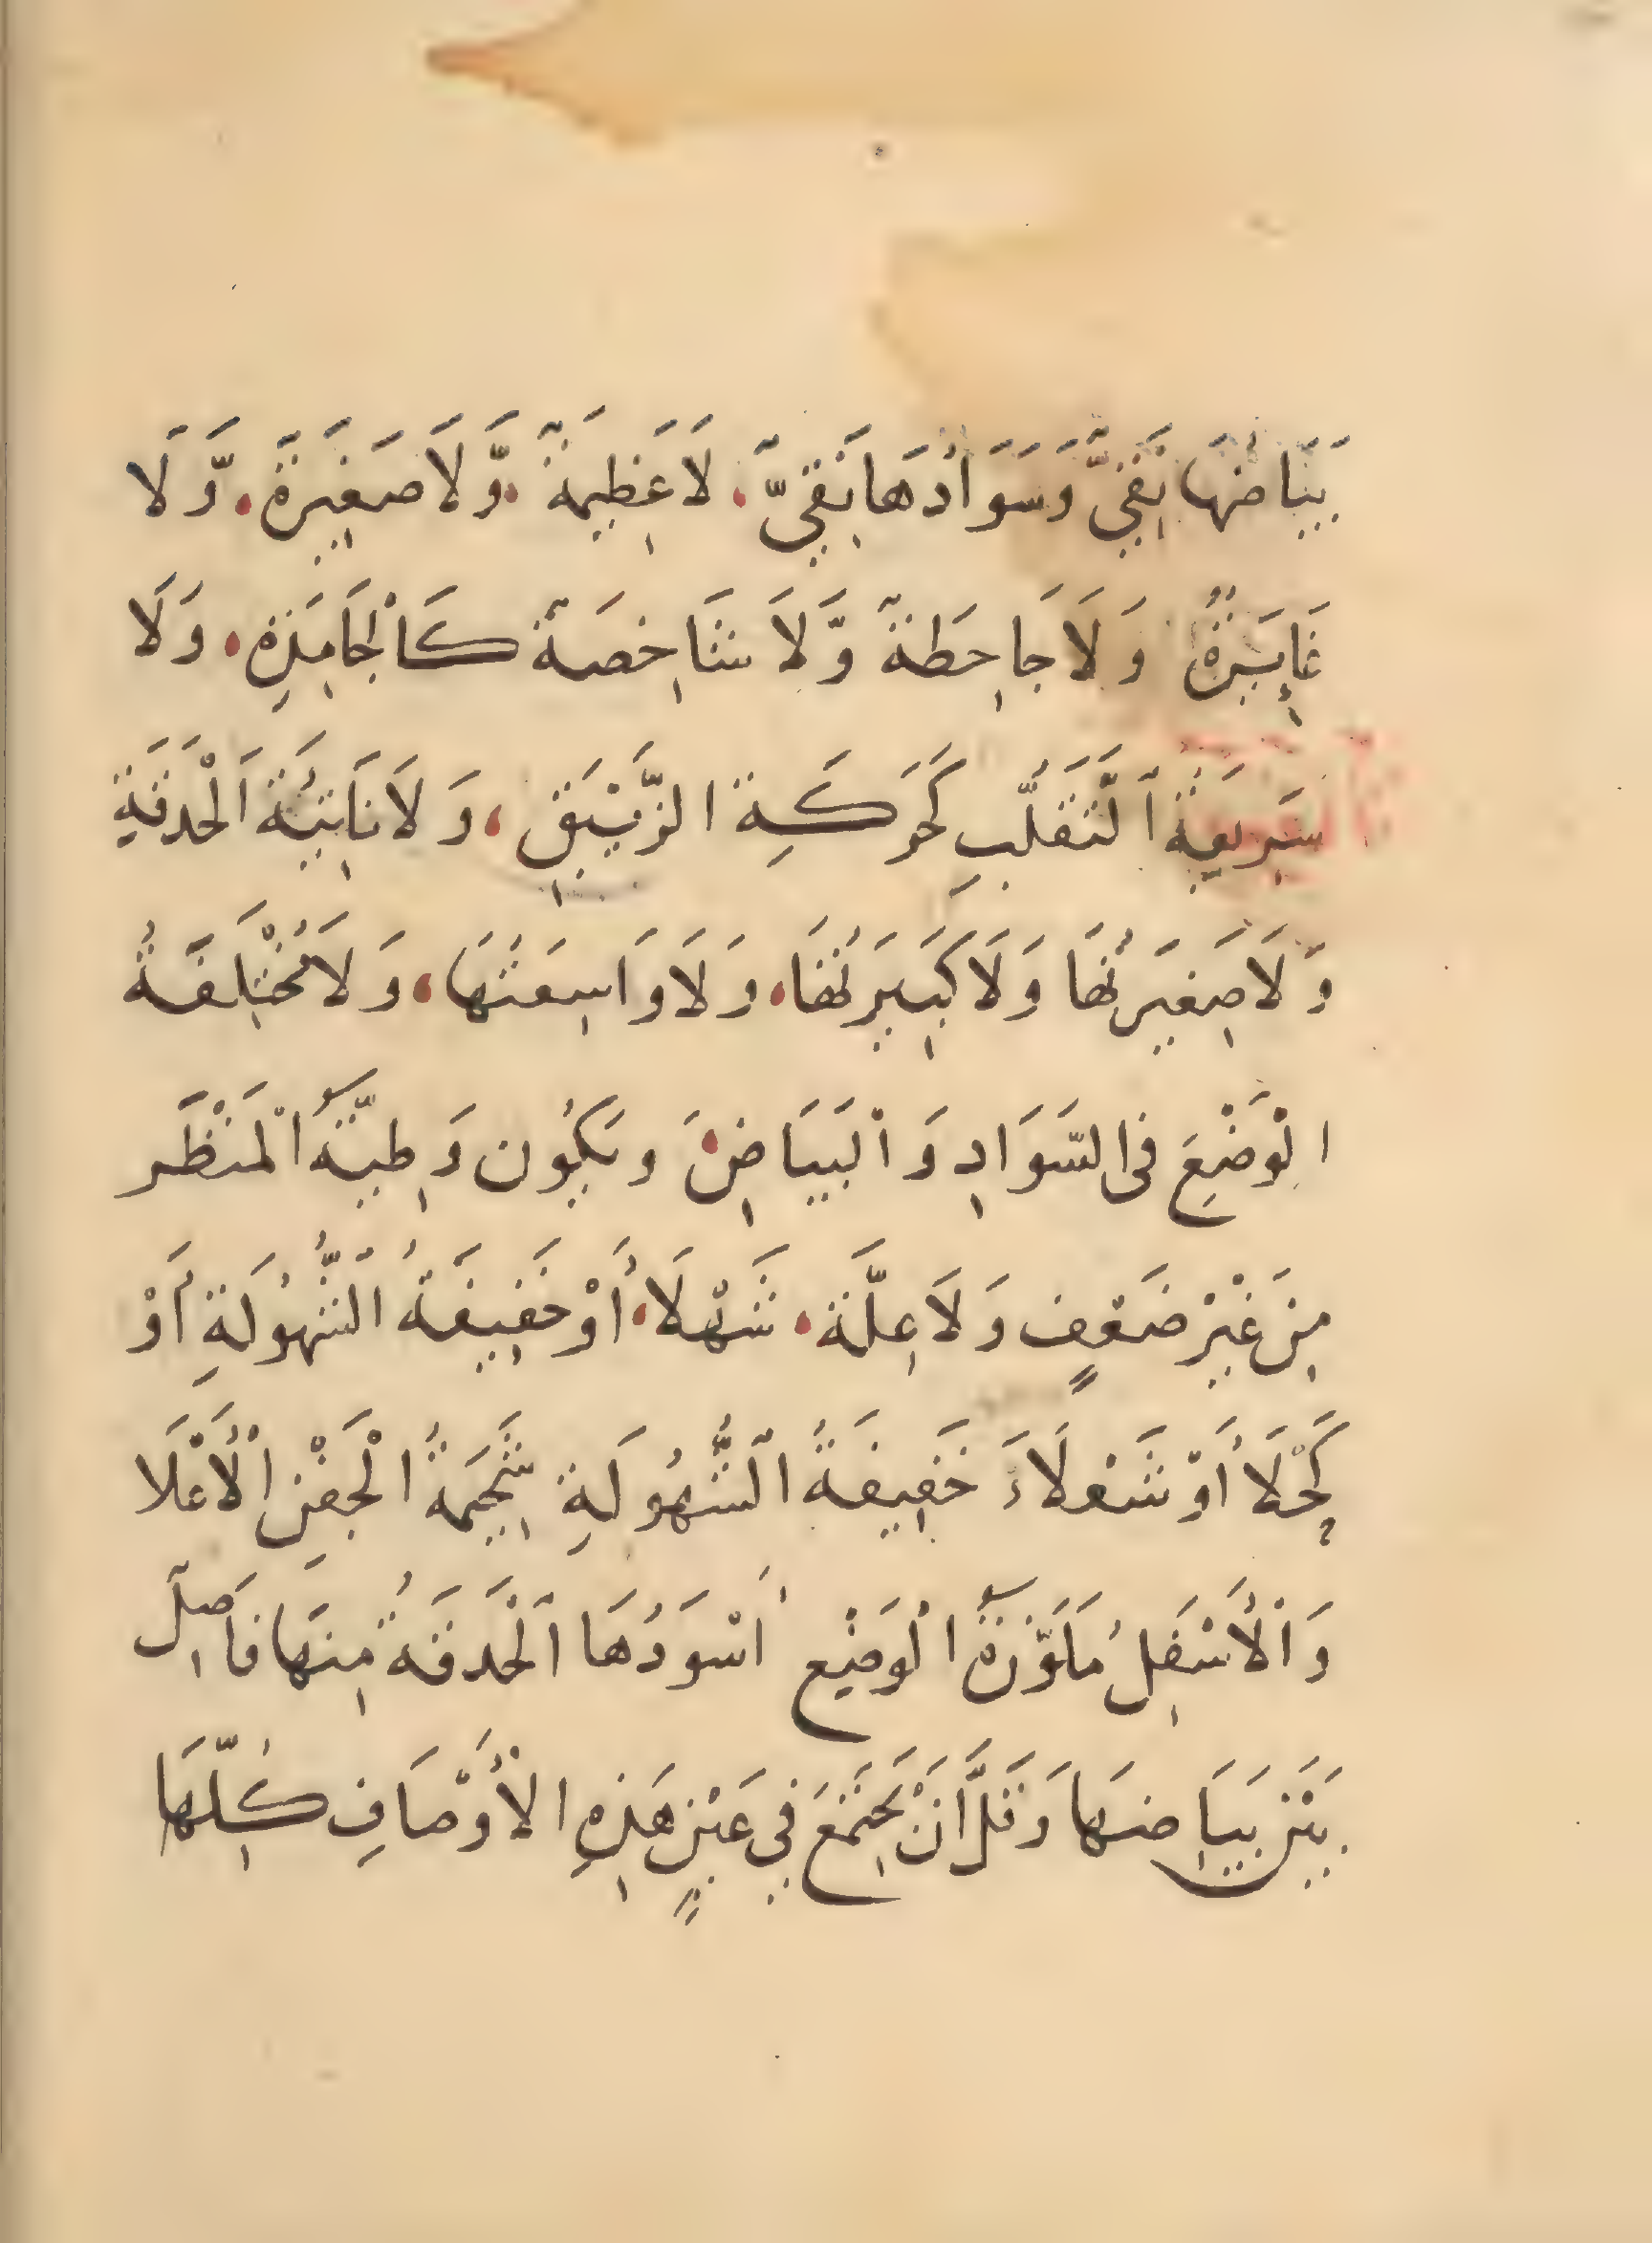 بَيَاضُهَا نَقِيٌّ وَسَوَادُهَا نَقِيٌّ، لَا عَظِيمَةً، وَّلَا صَغِيرَةً، وَّلَا
غَايِرَةً وَلَا جَاحِظَةً وَّلَا شَاخِصَةً كَالْجَامِدَةِ، وَلَا
سَرِيعَةُ التَّقَلُّبِ كَحَرَكَةِ الزِّيْبَقِ، وَلَا نَاتِئَةَ الْحَدَقَةِ
وَلَا صَغِيرَتُهَا وَلَا كَبِيرَتُهَا، وَلَا وَاسِعَتُهَا، وَلَا مُخْتَلِفَةُ
الْوَضْعِ فى السَّوَادِ وَالْبَيَاضِ، وَيَكُون وَطِيَّةُ الْمَنْظَر
مِنْ غَيْرْ ضَعْفٍ وَلَا عِلَّةَ، شَهْلَا، أَوْ خَفِيفَةُ الشُّهُولَةِ أَوْ
كَحْلَا أَوْ شَعْلَاءَ خَفِيفَةُ الشُّهُولَةِ شَحِيمَةُ الْجَفْنِ الْأَعْلَا
وَالْأَسْفَلِ مُلَوَّزَةُ الْوَضْعِ أَسْوَدُهَا الْحَدَقَةُ مِنْهَا فَاصِلٌ
بَيْنَ بَيَاضِهَا وَقَلَّ أَنْ يَجْتَمِعَ فِي عَيْنٍ هَذِهِ الْأَوْصَافِ كُلِّهَا